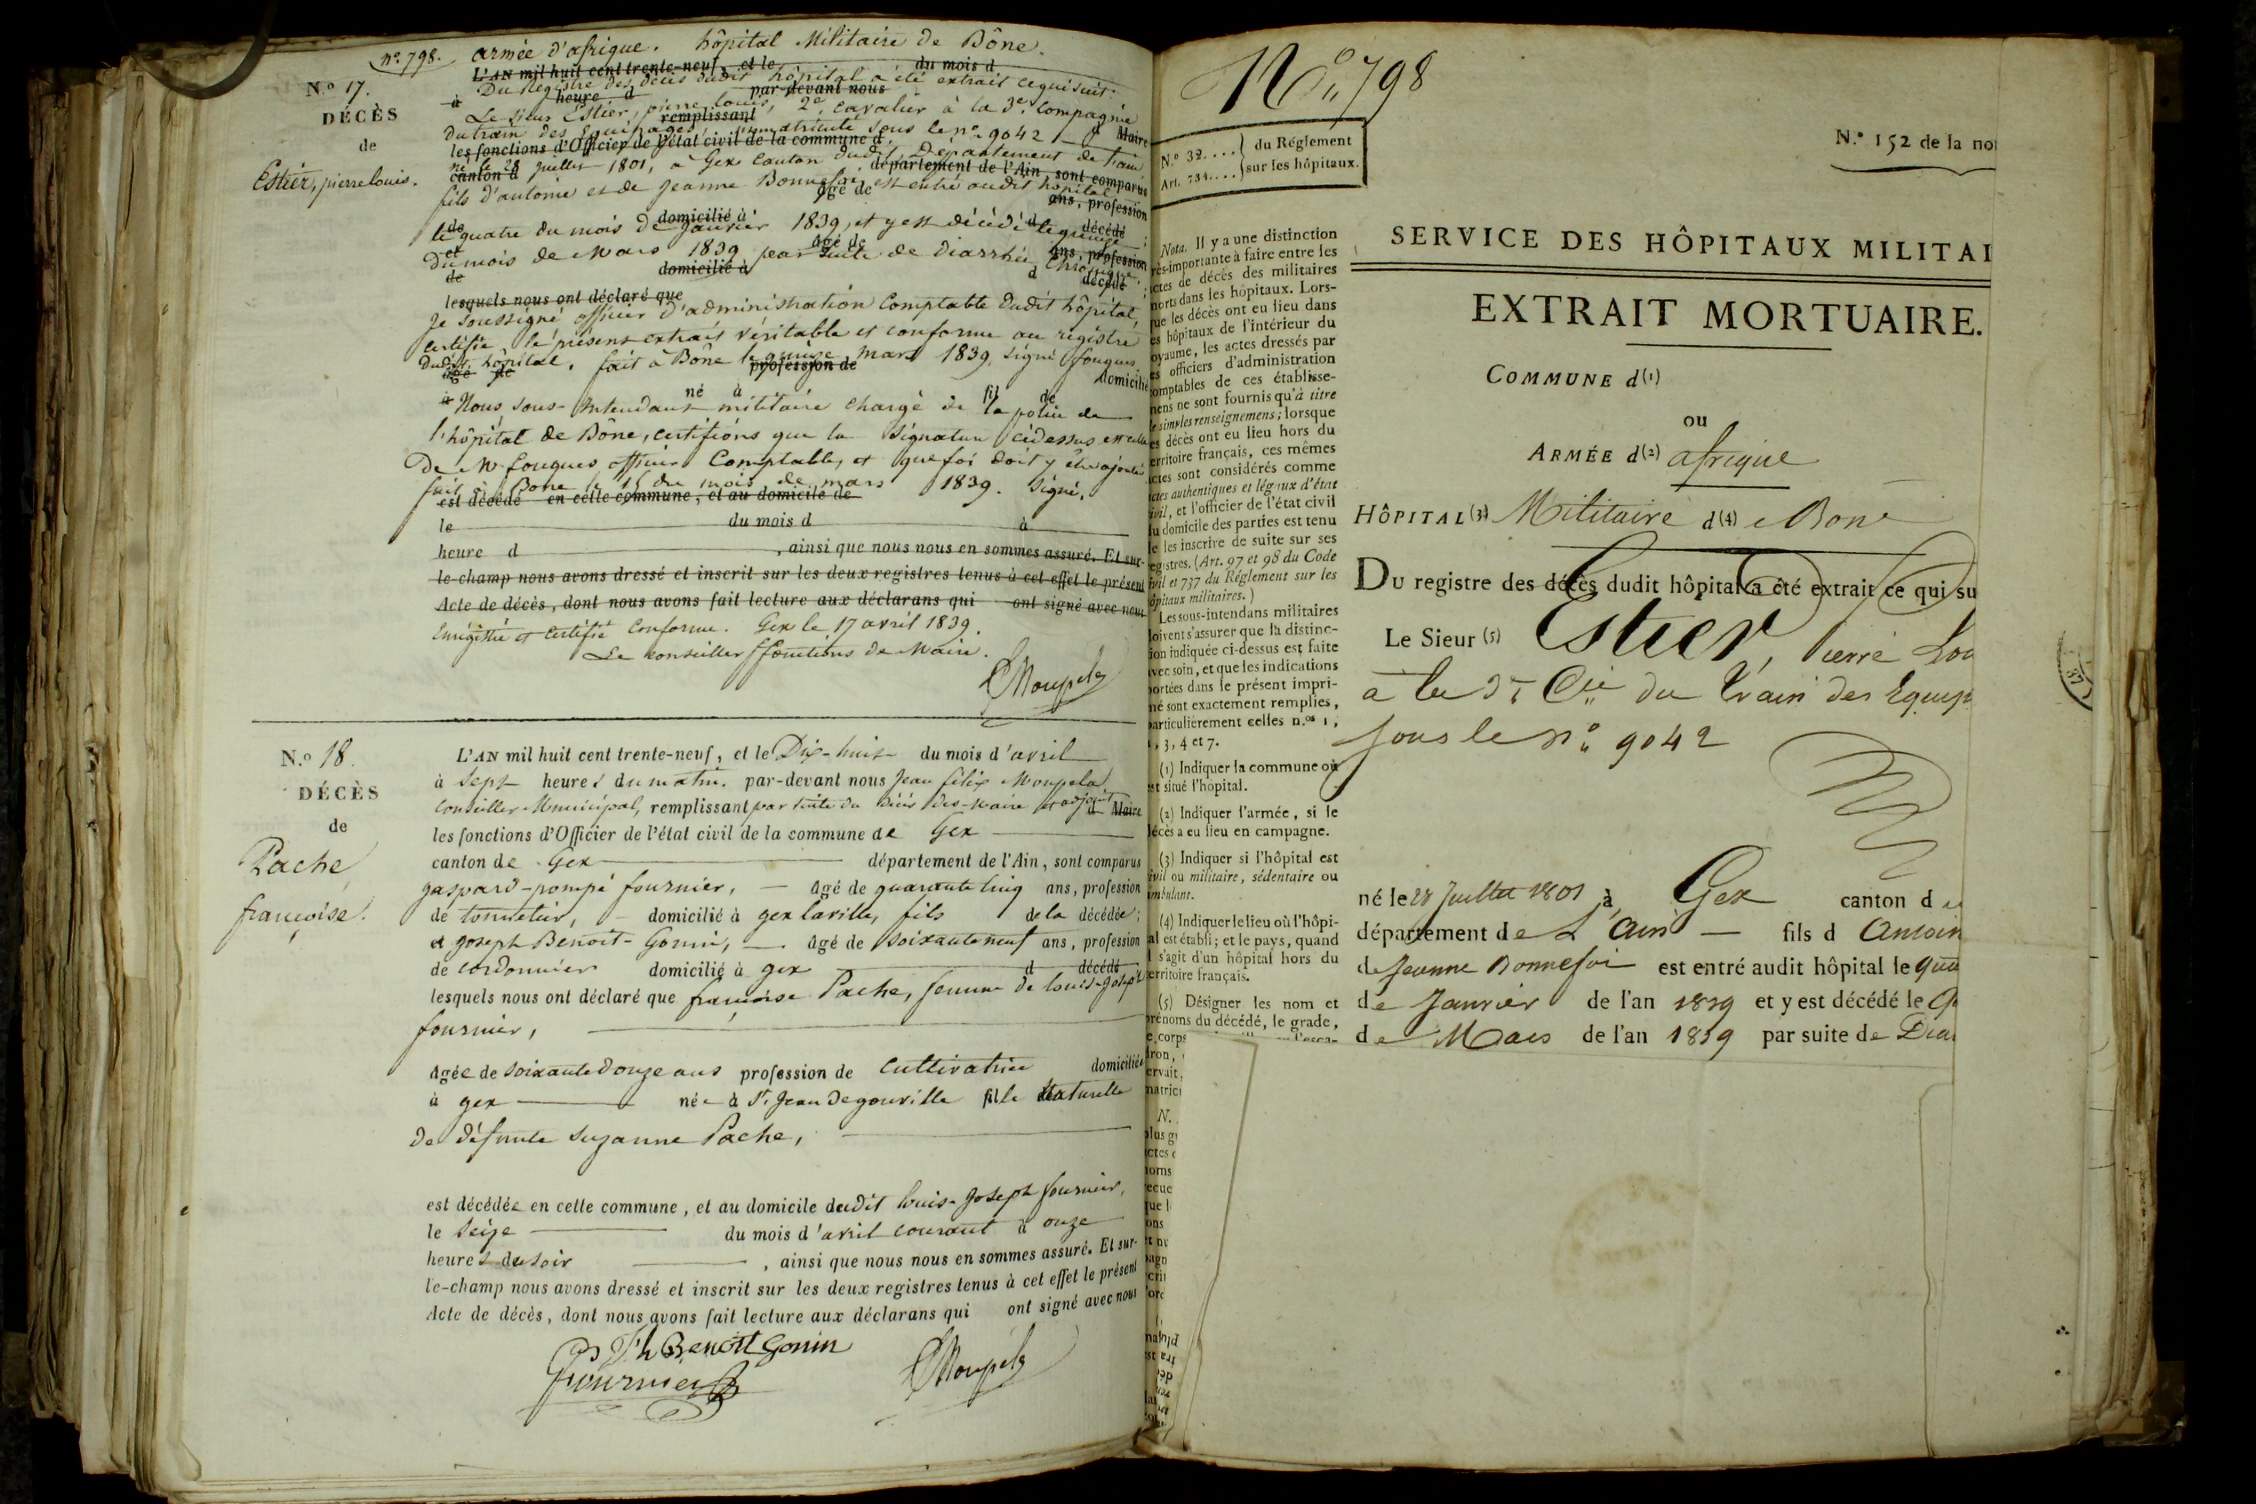 nº 798. armée d'afrique. hôpital Militaire de Bône.
N.º 17.
DÉCÈS
de
Estier, pierre louis.
L'AN mil huit cent trente-neuf et le du mois d
Du Registre des décès dudit hôpital a été extrait ce qui suit:
à heure d par-devant nous
Le sieur Estier, pierre louis, 2e. cavalier à la 3e. Compagnie
remplissant
du train des équipages, immatriculé sous le nº 9042 d Maire
les fonctions d'Officier de l'état civil de la commune d
né le 28 juillet 1801, à Gex canton dudit, Département de l'ain,
canton d département de l'Ain, sont comparus
fils d'antoine et de jeanne Bonnefoi, est entré audit hôpital
âgé de ans, profession
de domicilié à d décédé ;
le quatre du mois de janvier 1839, et y est décédé le quinze
et âgé de ans, profession
du mois de Mars 1839 par suite de diarrhée Chronique.
de domicilié à d décédé ;
lesquels nous ont déclaré que
Je soussigné officier d'administration Comptable dudit hôpital,
certifie le présent extrait véritable et conforme au registre
dudit hôpital. fait à Bône le quinze mars 1839. signé fouques.
âgé de profession de domicilié
à né à fil de
Nous sous-Intendant militaire chargé de la police de
l'hôpital de Bône, certifions que la signature cidessus est celle
De Mr fouques officier Comptable, et que foi doit y être ajoutée
fait à Bone le 15 du mois de mars 1839. signé,
est décédé en cette commune, et au domicile de
le du mois d à
heure d , ainsi que nous nous en sommes assuré. Et sur-
le-champ nous avons dressé et inscrit sur les deux registres tenus à cet effet le présent
Acte de décès, dont nous avons fait lecture aux déclarans qui ont signé avec nous
Enregistré et certifié Conforme. Gex le 17 avril 1839.
Le conseiller ffonctions de Maire.
Moupela
N.º 18.
DÉCÈS
de
Pache,
françoise.
L'AN mil huit cent trente-neuf, et le Dix-huit du mois d'avril
à Sept heures du matin. par-devant nous Jean félix Moupela,
Conseiller Municipal, remplissant par suite du décès des-maire et adjoint d Maire
les fonctions d'Officier de l'état civil de la commune de Gex
canton de Gex département de l'Ain, sont comparus
gaspard-pompé fournier, âgé de quarante cinq ans, profession
de tonnelier, domicilié à gex laville, fils de la décédée ;
et joseph Benoit-Gonin, âgé de soixante neuf ans, profession
de cordonnier domicilié à gex d décédé
lesquels nous ont déclaré que françoise Pache, femme de louis-joseph
fournier,
âgée de soixante douze ans profession de cultivatrice domiciliée
à gex née à St. Jean de gonville fille Naturelle
de défunte suzanne Pache,
est décédée en cette commune, et au domicile dudit louis-joseph fournier,
le seize du mois d'avril courant à onze
heures du soir , ainsi que nous nous en sommes assuré. Et sur-
le-champ nous avons dressé et inscrit sur les deux registres tenus à cet effet le présent
Acte de décès, dont nous avons fait lecture aux déclarans qui ont signé avec nous
Jh Benoit Gonin
Fournier
Moupela
Nº 798
N.º 32.... du Réglement
Art. 734.... sur les hôpitaux.
Nota. Il y a une distinction
très-importante à faire entre les
actes de décès des militaires
morts dans les hôpitaux. Lors-
que les décès ont eu lieu dans
les hôpitaux de l'intérieur du
royaume, les actes dressés par
les officiers d'administration
comptables de ces établisse-
mens ne sont fournis qu'à titre
de simples renseignemens; lorsque
les décès ont eu lieu hors du
territoire français, ces mêmes
actes sont considérés comme
actes authentiques et légaux d'état
civil, et l'officier de l'état civil
du domicile des parties est tenu
de les inscrire de suite sur ses
registres. (Art. 97 et 98 du Code
civil et 737 du Réglement sur les
hôpitaux militaires.)
Les sous-intendans militaires
doivent s'assurer que la distinc-
tion indiquée ci-dessus est faite
avec soin, et que les indications
portées dans le présent impri-
mé sont exactement remplies,
particulièrement celles n.os 1,
2, 3, 4 et 7.
(1) Indiquer la commune où
est situé l'hôpital.
(2) Indiquer l'armée, si le
décès a eu lieu en campagne.
(3) Indiquer si l'hôpital est
civil ou militaire, sédentaire ou
ambulant.
(4) Indiquer le lieu où l'hôpi-
tal est établi; et le pays, quand
il s'agit d'un hôpital hors du
territoire français.
(5) Désigner les nom et
prénoms du décédé, le grade,
N.º 152 de la no
SERVICE DES HÔPITAUX MILITAI
EXTRAIT MORTUAIRE.
COMMUNE d(1)
ou
ARMÉE d(2) afrique
HÔPITAL(3) Militaire d(4) e Bone
DU registre des décès dudit hôpital a été extrait ce qui su
Le Sieur (5) Estier, Pierre Lou
à la 3e Cie du Train des Equip
sous le nº 9042
né le 28 Juillet 1801 à Gex canton d
département de L'ain fils d Antoin
de Jeanne Bonnefoi est entré audit hôpital le qua
de Janvier de l'an 1839 et y est décédé le
de Mars de l'an 1839 par suite de Dia